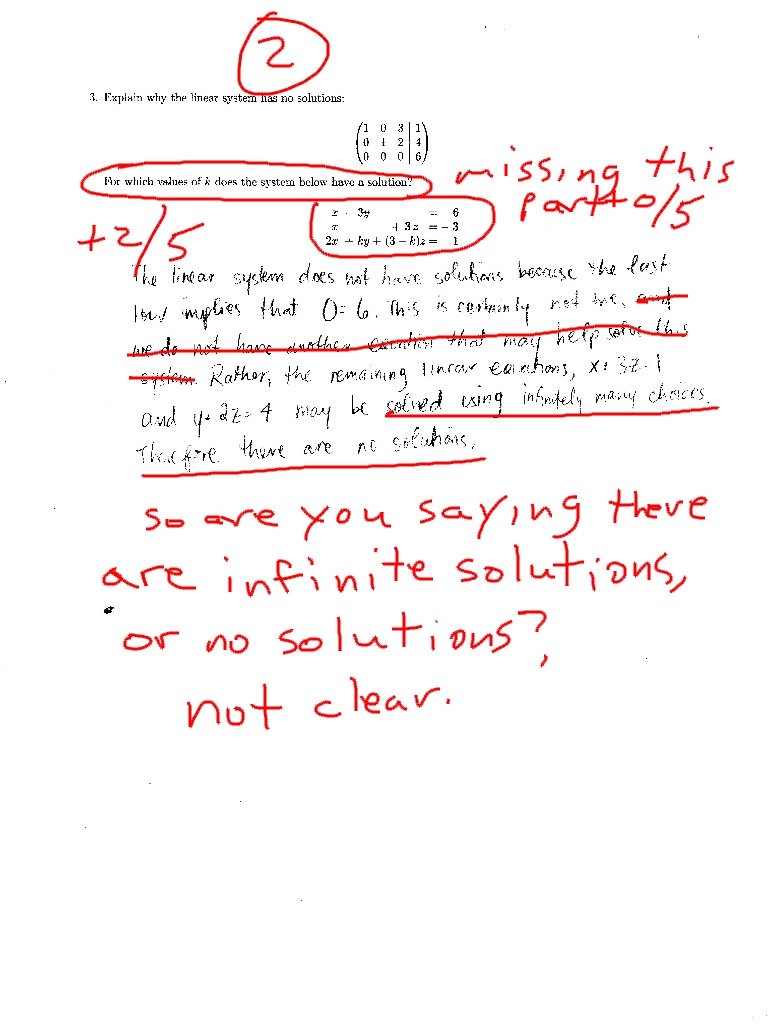 2
3. Explain why the linear system has no solutions:
1 0 3 | 1
0 1 2 | 4
0 0 0 | 6
missing this
For which values of k does the system below have a solution?
part +0/5
x - 3y = 6
x + 3z = -3
2x + ky + (3 - k)z = 1
+2/5
The linear system does not have solutions because the last
row implies that 0=6. This is certainly not true, and
we do not have another equation that may help solve this
system. Rather, the remaining linear equations, x+3z=1
and y+2z=4 may be solved using infinitely many choices.
Therefore there are no solutions.
so are you saying there
are infinite solutions,
or no solutions?
not clear.